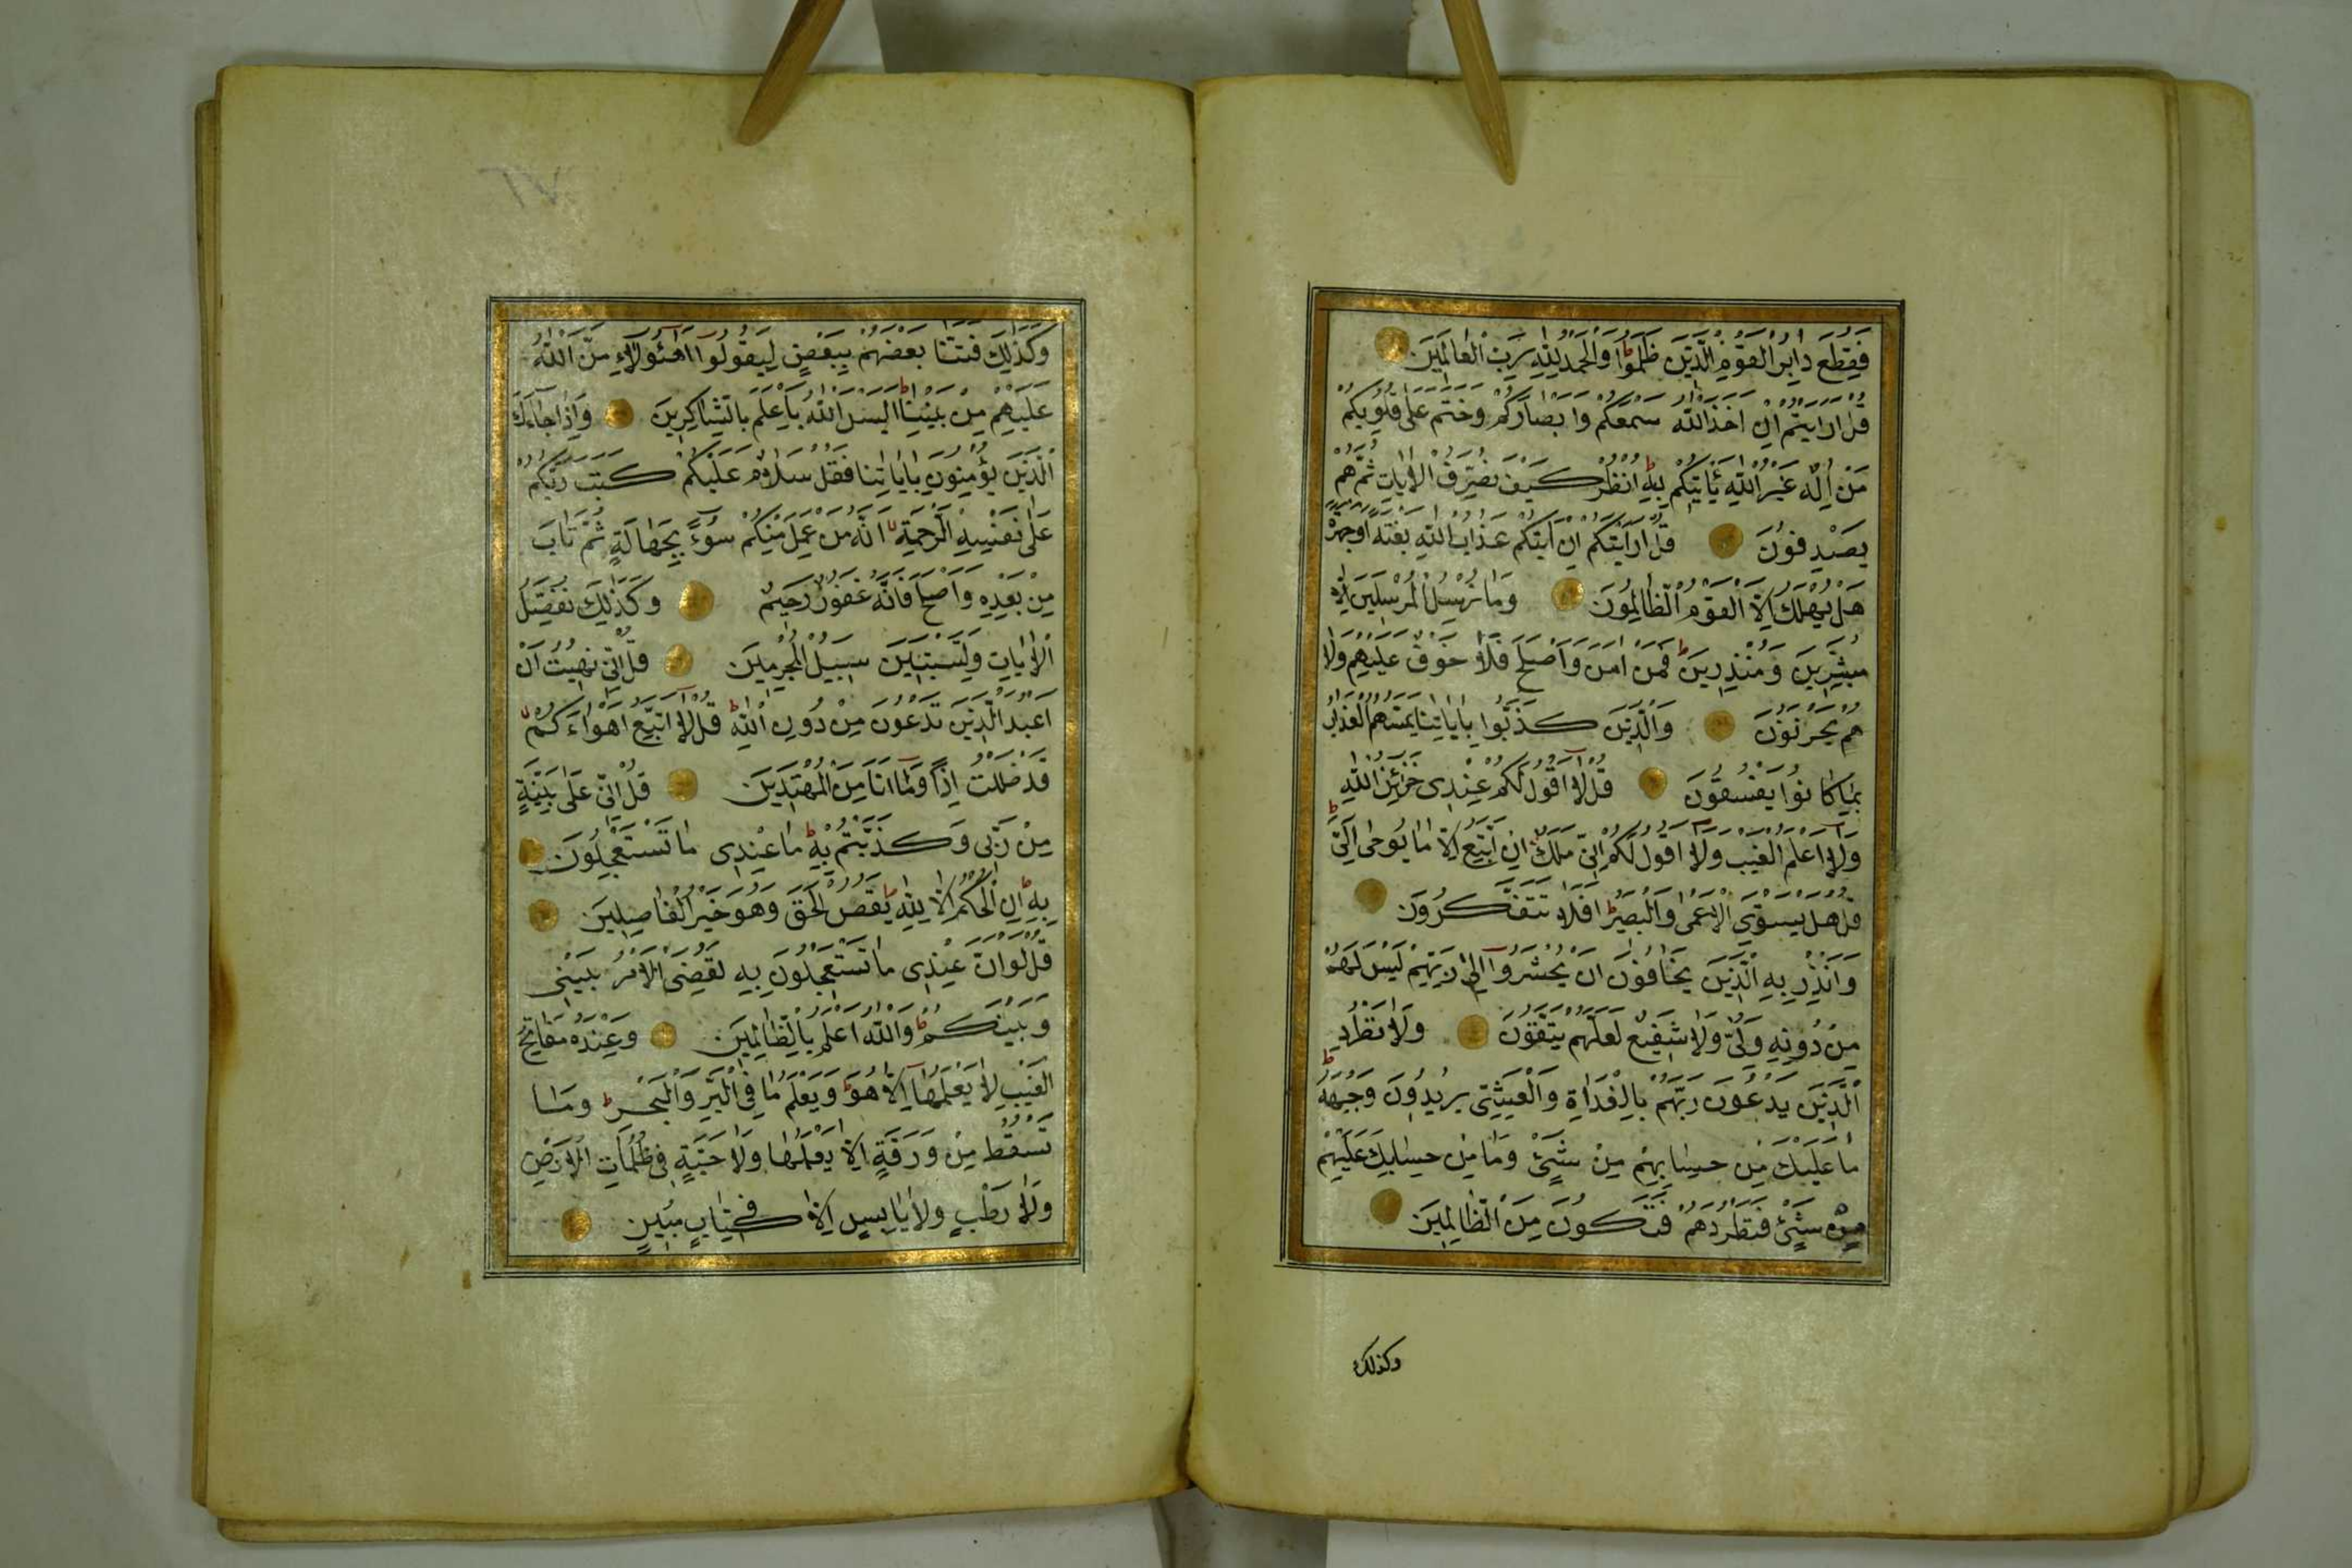 فَقُطِعَ دَابِرُ الْقَوْمِ الَّذِينَ ظَلَمُوا وَالْحَمْدُ لِلّٰهِ رَبِّ الْعَالَمِينَ
قُلْ اَرَاَيْتُمْ اِنْ اَخَذَ اللّٰهُ سَمْعَكُمْ وَاَبْصَارَكُمْ وَخَتَمَ عَلٰى قُلُوبِكُمْ
مَنْ اِلٰهٌ غَيْرُ اللّٰهِ يَاْتِيكُمْ بِهِ ط اُنْظُرْ كَيْفَ نُصَرِّفُ الْاٰيَاتِ ثُمَّ هُمْ
يَصْدِفُونَ قُلْ اَرَاَيْتَكُمْ اِنْ اَتٰيكُمْ عَذَابُ اللّٰهِ بَغْتَةً اَوْ جَهْرَةً
هَلْ يُهْلَكُ اِلَّا الْقَوْمُ الظَّالِمُونَ وَمَا نُرْسِلُ الْمُرْسَلِينَ اِلَّا
مُبَشِّرِينَ وَمُنْذِرِينَ ط فَمَنْ اٰمَنَ وَاَصْلَحَ فَلَا خَوْفٌ عَلَيْهِمْ وَلَا
هُمْ يَحْزَنُونَ وَالَّذِينَ كَذَّبُوا بِاٰيَاتِنَا يَمَسُّهُمُ الْعَذَابُ
بِمَا كَانُوا يَفْسُقُونَ قُلْ لَا اَقُولُ لَكُمْ عِنْدِى خَزَائِنُ اللّٰهِ
وَلَا اَعْلَمُ الْغَيْبَ وَلَا اَقُولُ لَكُمْ اِنِّى مَلَكٌ اِنْ اَتَّبِعُ اِلَّا مَا يُوحٰى اِلَىَّ ط
قُلْ هَلْ يَسْتَوِى الْاَعْمٰى وَالْبَصِيرُ ط اَفَلَا تَتَفَكَّرُونَ
وَاَنْذِرْ بِهِ الَّذِينَ يَخَافُونَ اَنْ يُحْشَرُوا اِلٰى رَبِّهِمْ لَيْسَ لَهُمْ
مِنْ دُونِهِ وَلِىٌّ وَلَا شَفِيعٌ لَعَلَّهُمْ يَتَّقُونَ وَلَا تَطْرُدِ
الَّذِينَ يَدْعُونَ رَبَّهُمْ بِالْغَدَاةِ وَالْعَشِىِّ يُرِيدُونَ وَجْهَهُ ط
مَا عَلَيْكَ مِنْ حِسَابِهِمْ مِنْ شَىْءٍ وَمَا مِنْ حِسَابِكَ عَلَيْهِمْ
مِنْ شَىْءٍ فَتَطْرُدَهُمْ فَتَكُونَ مِنَ الظَّالِمِينَ
وكذلك
وَكَذٰلِكَ فَتَنَّا بَعْضَهُمْ بِبَعْضٍ لِيَقُولُوا اَهٰؤُلَاءِ مَنَّ اللّٰهُ
عَلَيْهِمْ مِنْ بَيْنِنَا ط اَلَيْسَ اللّٰهُ بِاَعْلَمَ بِالشَّاكِرِينَ وَاِذَا جَاءَكَ
الَّذِينَ يُؤْمِنُونَ بِاٰيَاتِنَا فَقُلْ سَلَامٌ عَلَيْكُمْ كَتَبَ رَبُّكُمْ
عَلٰى نَفْسِهِ الرَّحْمَةَ اَنَّهُ مَنْ عَمِلَ مِنْكُمْ سُوءً بِجَهَالَةٍ ثُمَّ تَابَ
مِنْ بَعْدِهِ وَاَصْلَحَ فَاَنَّهُ غَفُورٌ رَحِيمٌ وَكَذٰلِكَ نُفَصِّلُ
الْاٰيَاتِ وَلِتَسْتَبِينَ سَبِيلُ الْمُجْرِمِينَ قُلْ اِنِّى نُهِيتُ اَنْ
اَعْبُدَ الَّذِينَ تَدْعُونَ مِنْ دُونِ اللّٰهِ ط قُلْ لَا اَتَّبِعُ اَهْوَاءَكُمْ
قَدْ ضَلَلْتُ اِذًا وَمَا اَنَا مِنَ الْمُهْتَدِينَ قُلْ اِنِّى عَلٰى بَيِّنَةٍ
مِنْ رَبِّى وَكَذَّبْتُمْ بِهِ ط مَا عِنْدِى مَا تَسْتَعْجِلُونَ
بِهِ ط اِنِ الْحُكْمُ اِلَّا لِلّٰهِ ط يَقُصُّ الْحَقَّ وَهُوَ خَيْرُ الْفَاصِلِينَ
قُلْ لَوْ اَنَّ عِنْدِى مَا تَسْتَعْجِلُونَ بِهِ لَقُضِىَ الْاَمْرُ بَيْنِى
وَبَيْنَكُمْ ط وَاللّٰهُ اَعْلَمُ بِالظَّالِمِينَ وَعِنْدَهُ مَفَاتِحُ
الْغَيْبِ لَا يَعْلَمُهَا اِلَّا هُوَ ط وَيَعْلَمُ مَا فِى الْبَرِّ وَالْبَحْرِ ط وَمَا
تَسْقُطُ مِنْ وَرَقَةٍ اِلَّا يَعْلَمُهَا وَلَا حَبَّةٍ فِى ظُلُمَاتِ الْاَرْضِ
وَلَا رَطْبٍ وَلَا يَابِسٍ اِلَّا فِى كِتَابٍ مُبِينٍ